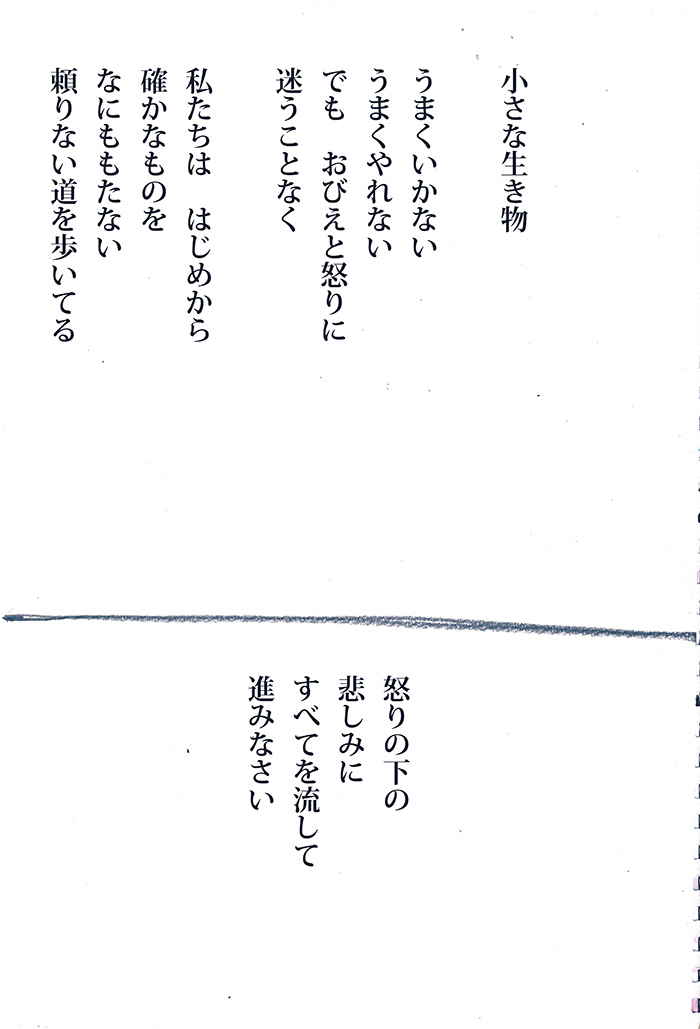 小さな生き物
うまくいかない
うまくやれない
でも　おびえと怒りに
迷うことなく
私たちは　はじめから
確かなものを
なにももたない
頼りない道を歩いてる
怒りの下の
悲しみに
すべてを流して
進みなさい